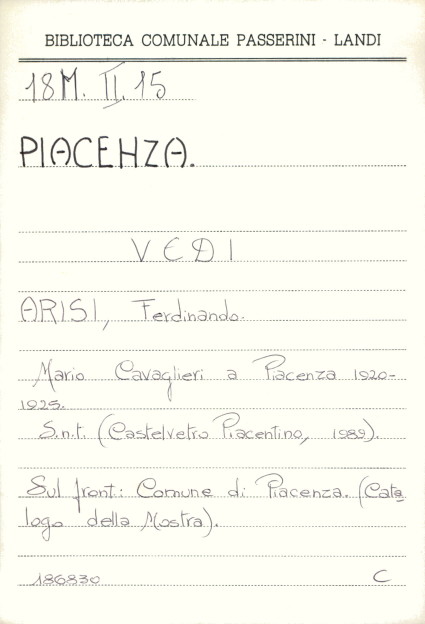 BIBLIOTECA COMUNALE PASSERINI - LANDI
18M. II. 15
PIACENZA.
VEDI
ARISI, Ferdinando.
Mario Cavaglieri a Piacenza 1920-
1925.
S.n.t. (Castelvetro Piacentino, 1989).
Sul front.: Comune di Piacenza. (Cata
logo della Mostra).
186830 C